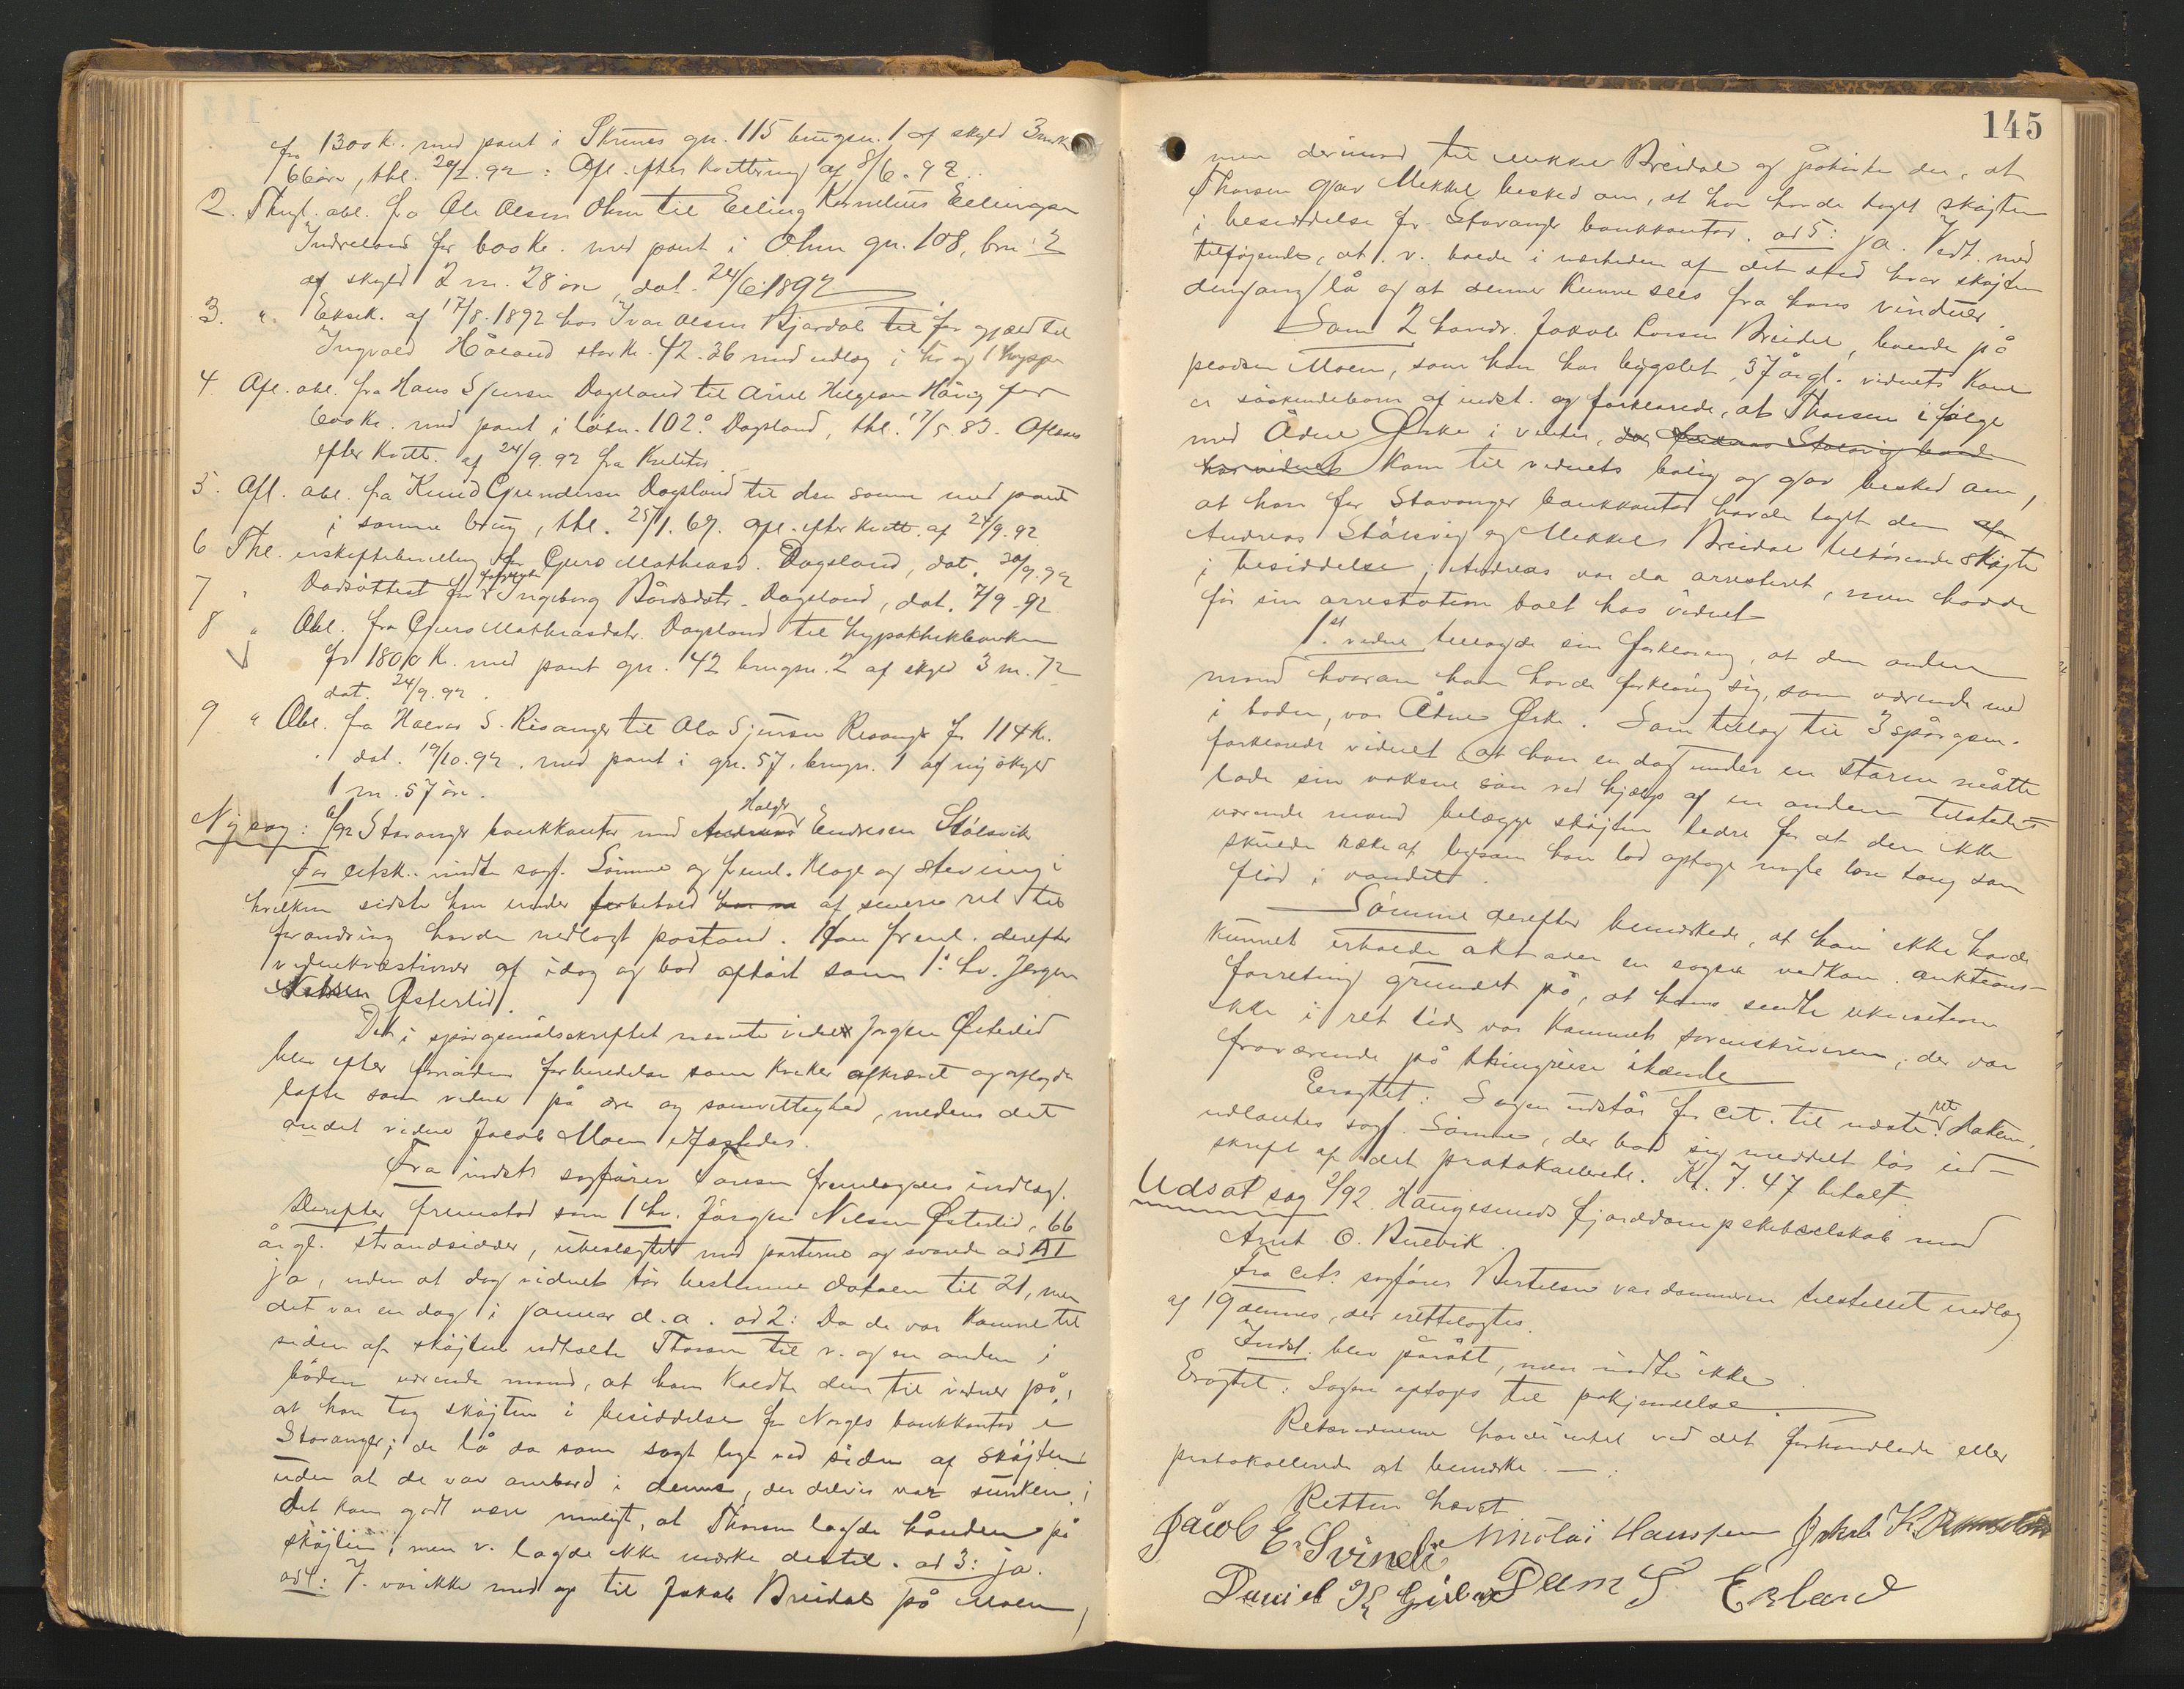 for 1300 k. med pant i Skrunes gn. 115 brugsn. 1 af skyld 3 mark
66 öre, thl. 29/1.92: Afl. efter kvittering af 8/6.92.
2. Thngl. obl. fra Ole Olsen Ohm til Elling Kornelius Ellingsen
Indreland for 600 kr. med pant i Ohm gn. 108, bn. 2
af skyld 2 m. 28 öre, dat. 24/6.1892
3. " Eksek. af 17/8.1892 hos Ivar Olsen Bjordal til for gjæld til
Ingvald Håland stor kr. 42.36 med udlæg i
4. Afl. obl. fra Hans Sjursen Dagsland til Arne Helgesen Håvig for
600 kr. med pant i löbn. 102 Dagsland, thl. 17/5.83. Aflæses
efter kvitt. af 24/9.92 fra kreditor.
5. Afl. obl. fra Knud Gundersen Dagsland til den samme med pant
i samme brug, thl. 25/1.69. Afl. efter kvitt. af 24/9.92.
6 Thl. uskiftebevilling for Guro Mathiasd. Dagsland, dat. 30/9.92
7 " Dødsattest for Ingeborg Bårdsdatr. Dagsland, dat. 7/9.92
8 " Obl. fra Guro Mathiasdatr. Dagsland til hypothekbanken
for 1800 k. med pant gn. 42 brugsn. 2 af skyld 3 m. 72
dat. 24/9.92.
9 " Obl. fra Halvor S. Risanger til Ola Sjursen Risanger for 114 kr.
dat. 19/10.92, med pant i gn. 57, brugsn. 1 af ny skyld
1 m. 57 öre.
Ny sag: 6/92 Stavanger bankkontor mod Halgr Endresen Stölsvik
For citsk. mödte sagf. Sömme og freml. klage og stevning i
hvilken sidste han under forbehold af senere ret til
forandring havde nedlagt påstand. Han freml. derefter
vidnekvæstioner af idag og bad afhört som 1ste hv. Jörgen
Nilsen Østerlid.
Det i spörgsmålsskriftet nævnte vidne Jörgen Østerlid
blev efter foreløbig forberedelse som kvæker afkrævet og aflagde
löfte som vidne på ære og samvittighed, medens det
andet vidne Jacob Moen edfæstedes.
Fra indst. sagförer Tonsen fremlagdes indlæg.
Derefter fremstod som 1 hv. Jörgen Nilsen Østerlid, 66
år gl. strandsidder, ubeslægtet med parterne og svarede ad 1
ja, uden at dog vidnet tör bestemme datoen til 21, men
det var en dag i januar d.a. ad 2: Da de var kommet til
siden af sköjten udtalte Thorsen til v. og en anden i
båden værende mand, at han kaldte dem til vidner på,
at han tog sköjten i besiddelse for Norges bankkontor i
Stavanger; de lå da som sagt lige ved siden af sköjten
uden at de var ombord i denne, der delvis var sunken;
det kan godt være muligt, at Thorsen lagde hånden på
sköjten, men v. lagde ikke mærke dertil. ad 3: ja.
ad 4: V. var ikke med op til Jakob Breidal på Moen,
145
men derimod til Mikkel Breidal og påhörte der, at
Thorsen gav Mikkel besked om, at han havde taget sköjten
i besiddelse for Stavanger bankkontor. ad 5: ja. Vedt. med
tilföjende, at v. boede i nærheden af det sted hvor sköjten
dengang lå og at denne kunne sees fra hans vinduer.
Som 2 hovedv. Jakob Larsen Breidal, boende på
pladsen Moen, som han har bygslet, 37 år gl. vidnets kone
er söskendebarn af indst. og forklarede, at Thorsen i fölge
med Ådne Ørke i vinter, Stølsvig
kom til vidnets bolig og gav besked om,
at han for Stavanger bankkontor havde taget den
Andreas Stölsvig og Mikkel Breidal tilhörende sköjte
i besiddelse; Andreas var da arresteret, men havde
för sin arrestation boet hos vidnet
1st vidne tillagde sin forklaring, at den anden
mand hvorom han havde forklaret sig, som værende med
i baden, var Ådne Ørke. Som tillæg til 3 spörgsm.
forklarede vidnet at han en dag under en storm måtte
lade sin voksne sön ved hjælp af en anden tilstede-
værende mand belægge sköjten bedre for at den ikke
skulde ligesom han lod optage nogle löse toug som
flöd i vandet.
Sömme derefter bemærkede, at han ikke havde
kunnet erholde akt over en sagen vedkom. auktions-
forretning grundet på, at hans sendte rekvisition
ikke i ret tid var kommet sorenskriveren, der var
fraværende på thingreise ihænde
Eragtet: Sagen udstår for cit. til næste ret. Akten
udlåntes sagf. Sömme, der bad sig meddelt lös ud-
skrift af det protokollerede. Kr. 7.47 betalt.
Udsat sag 2/92. Haugesunds fjorddampskibsselskab mod
Arnt O. Buevik.
Fra cits. sagförer Bertelsen var dommeren tilstillet indlæg
af 19 dennes, der irettelagdes.
Indst. blev påråbt, men mödte ikke.
Eragtet: Sagen optages til påkjendelse.
Retsvidnerne havde intet ved det forhandlede eller
protokollerede at bemærke. —
Retten hævet
Jacob E. Svindl Nikolai Hanssen Jakob K.
Daniel K. S. Erland